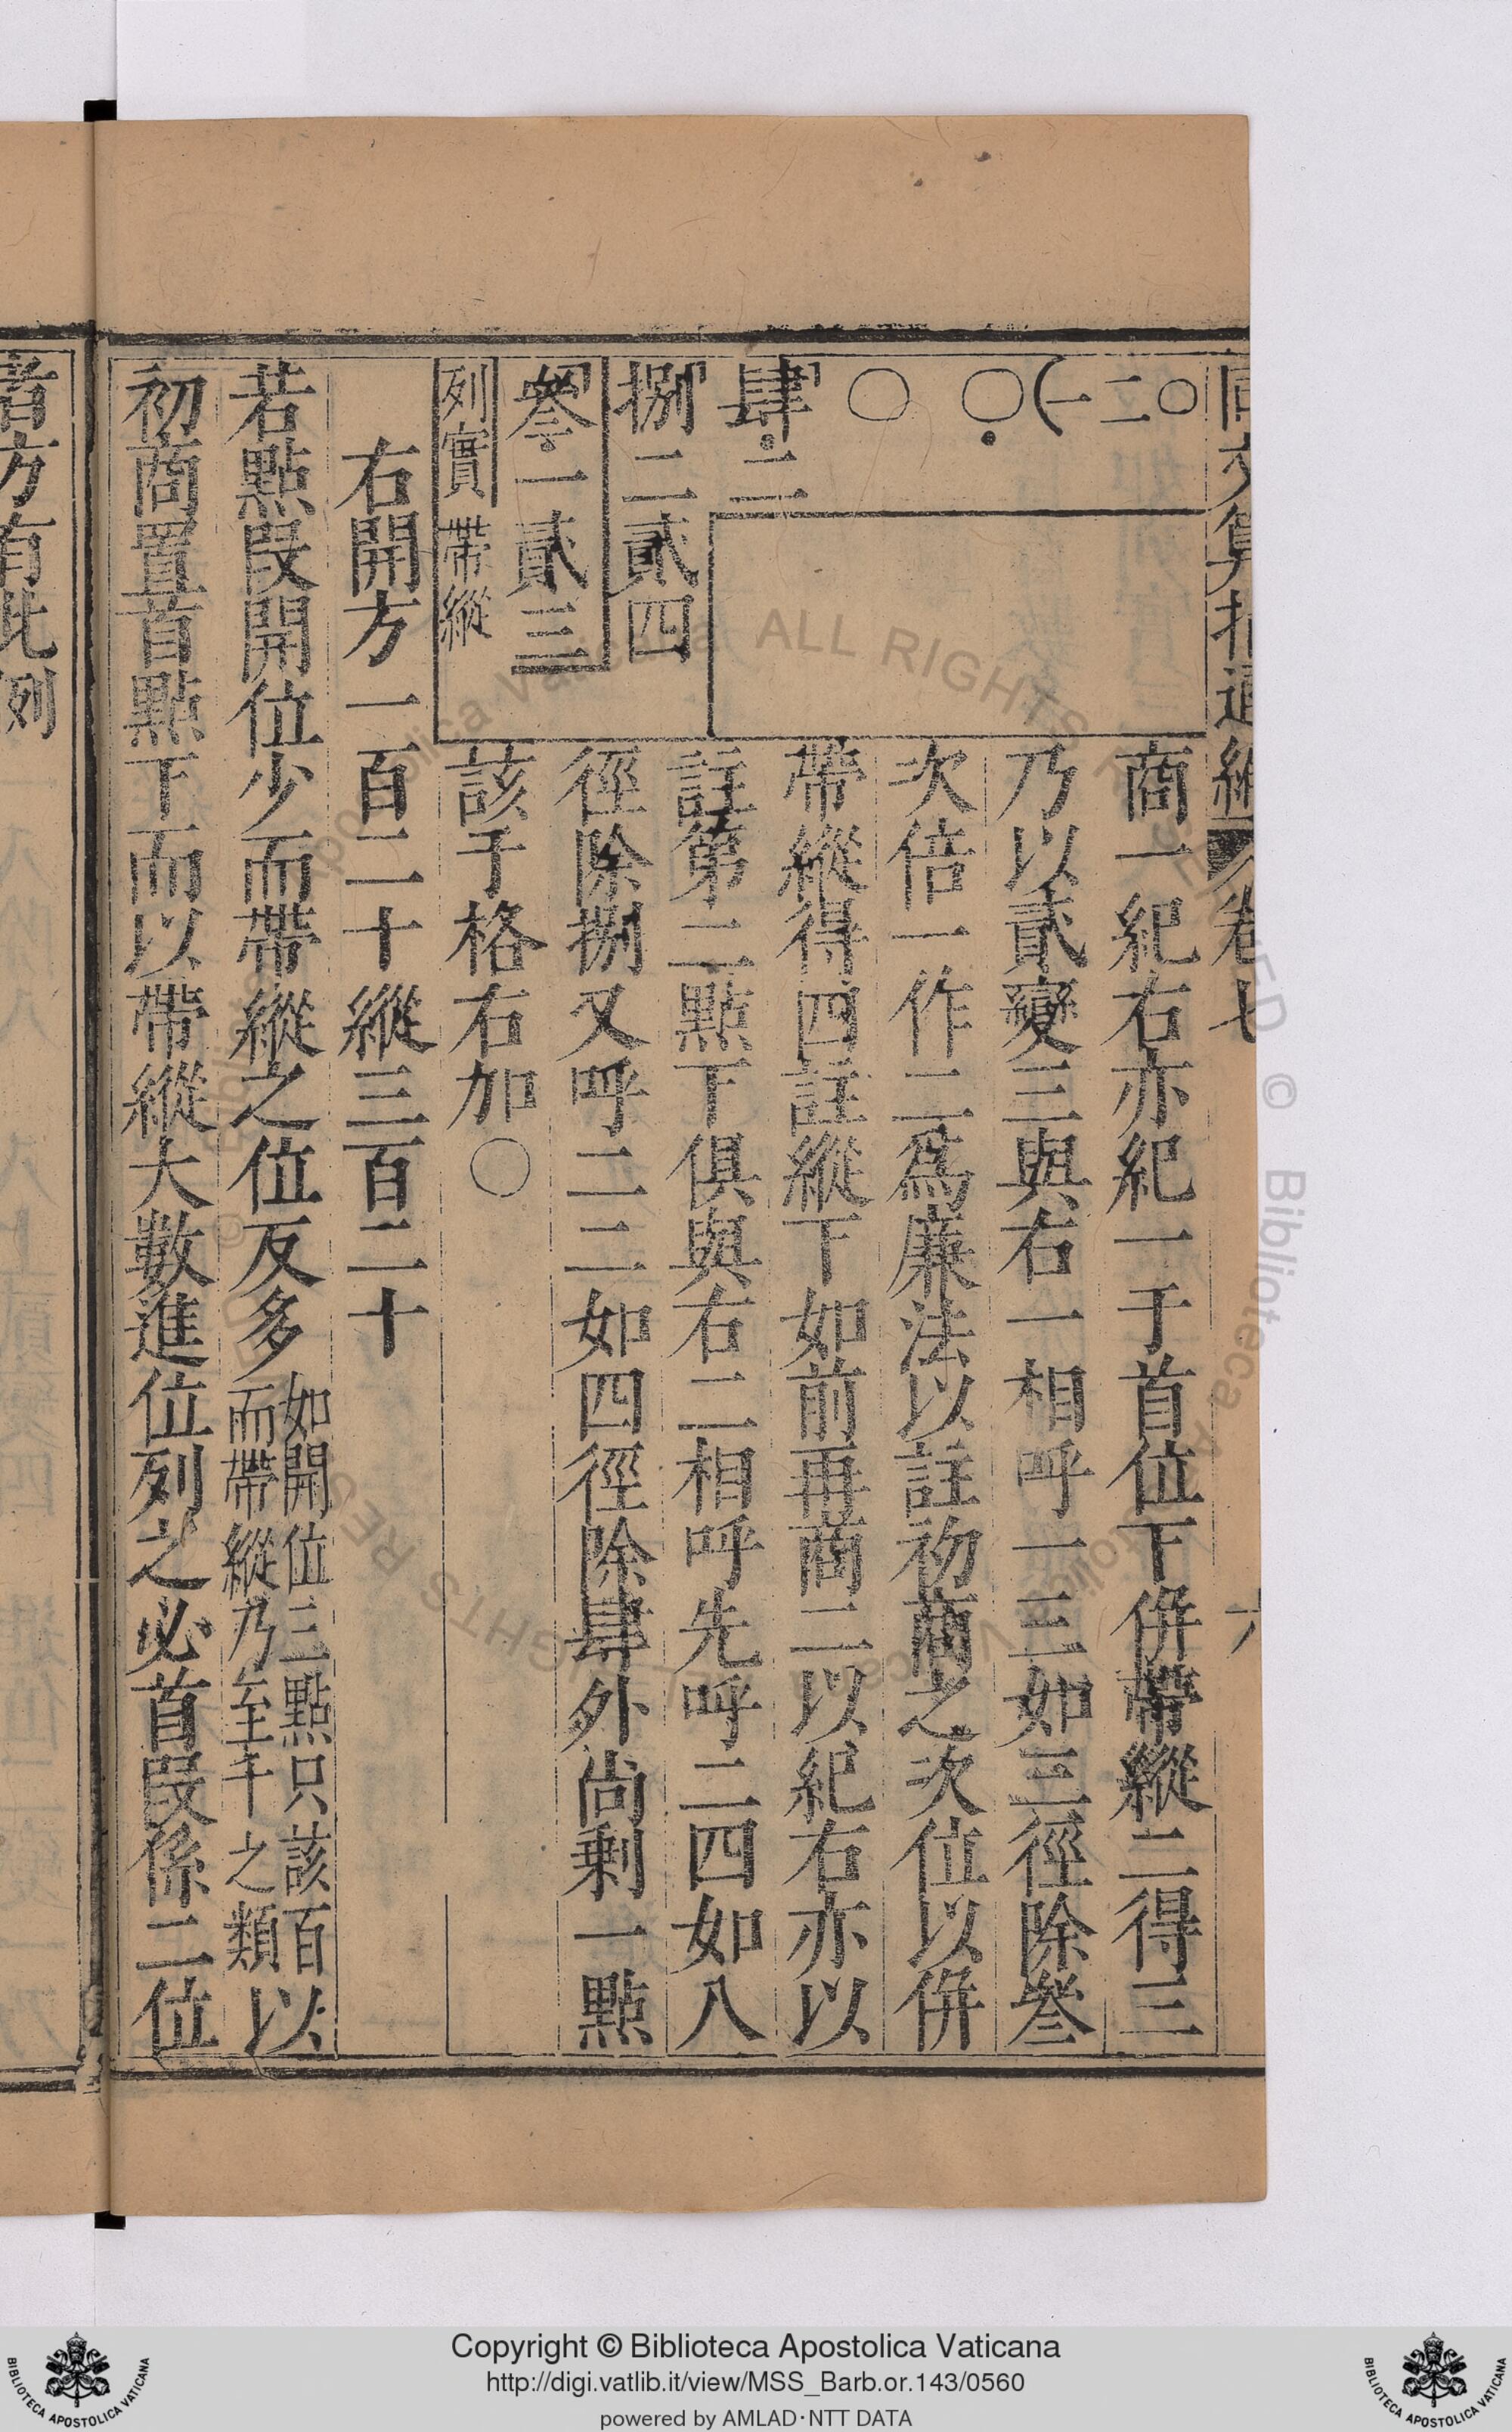 同文算指通編 卷七 六
○二一(○ ○ 肆二 捌二貳四 叄一貳三 列實 帶縱
商一紀右亦紀一于首位下併帶縱二得三
乃以貳變三與右一相呼一三如三徑除叄
次倍一作二爲廉法以註初商之次位以併
帶縱得四註縱下如前再商二以紀右亦以
註第二點下俱與右二相呼先呼二四如八
徑除捌又呼二二如四徑除肆外尚剩一點
該于格右加○
右開方一百二十縱三百二十
若點段開位少而帶縱之位反多如開位三點只該百而帶縱乃至千之類以
初商置首點下而以帶縱大數進位列之必首段係二位
者方有此例
ALL RIGHTS RESERVED © Biblioteca Apostolica Vaticana
Copyright © Biblioteca Apostolica Vaticana
http://digi.vatlib.it/view/MSS_Barb.or.143/0560
powered by AMLAD·NTT DATA
BIBLIOTECA APOSTOLICA VATICANA
BIBLIOTECA APOSTOLICA VATICANA